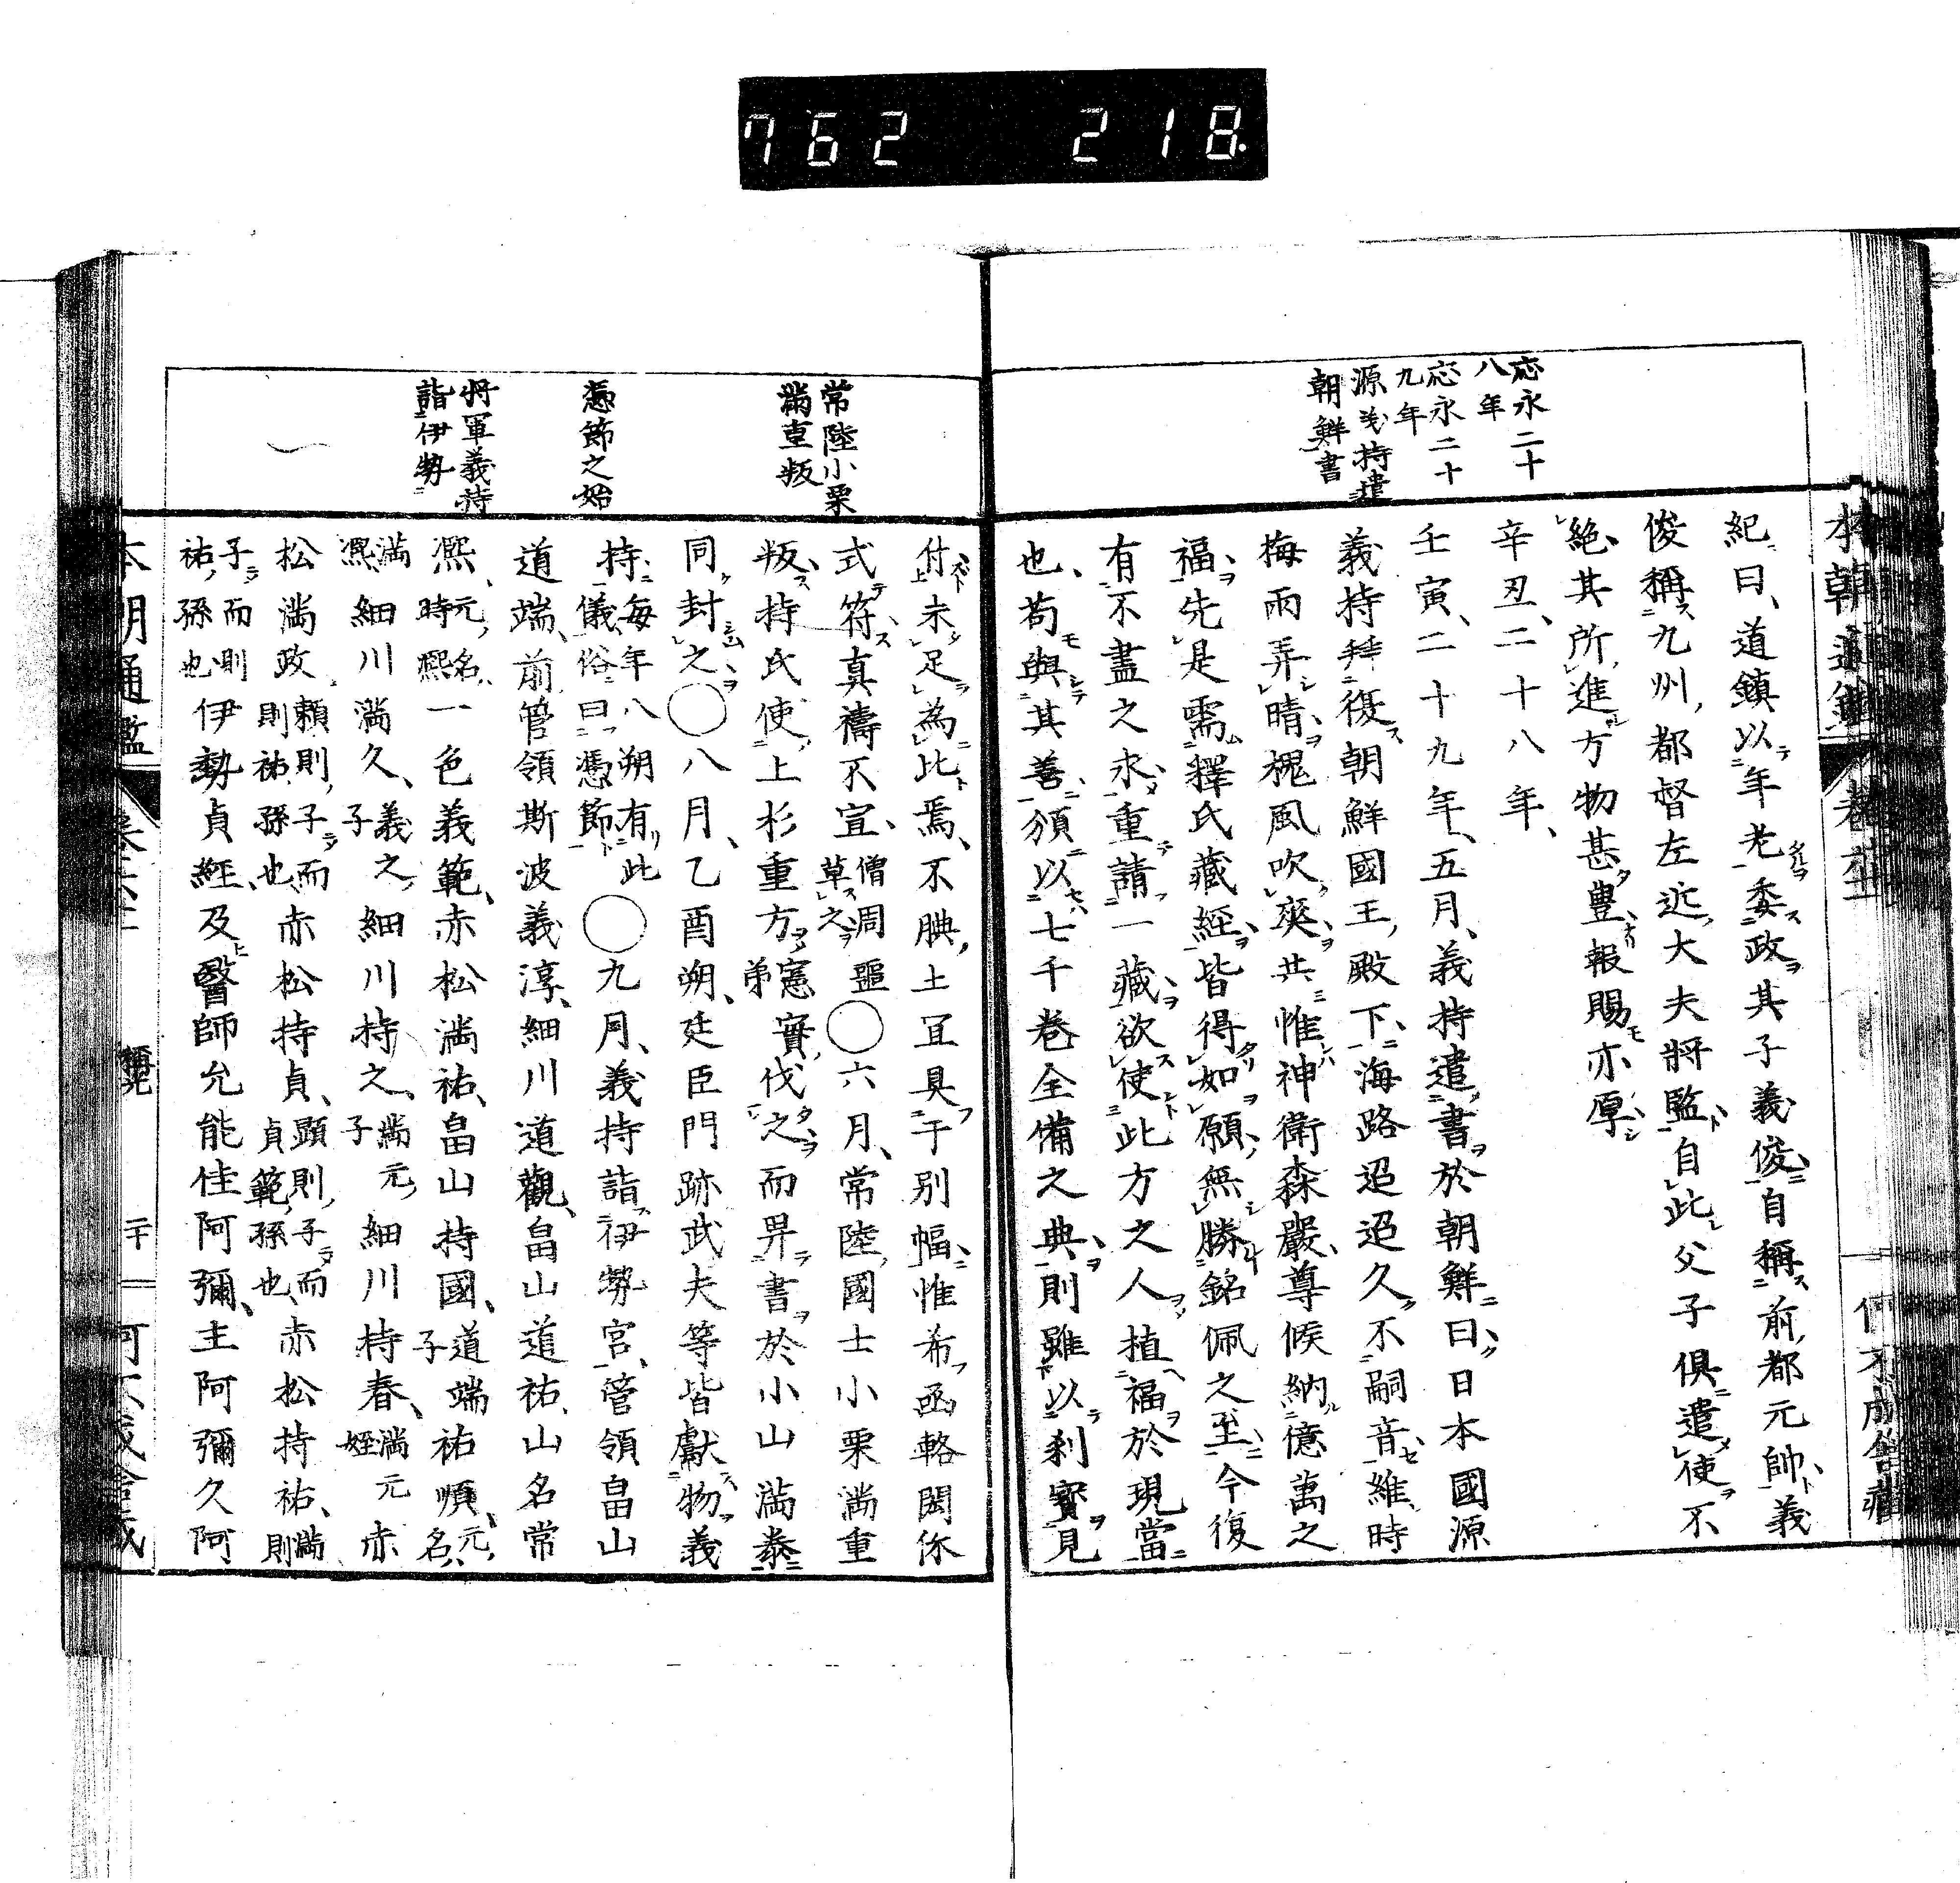 762 218
応永二十
八年
応永二十
九年
源義持遣
朝鮮書
紀曰、道鎮以年老委政其子義俊自稱前都元帥義
俊稱九州都督左近大夫將監自此父子俱遣使不
絶其所進方物甚豊報賜亦厚
辛丑、二十八年、
壬寅、二十九年、五月、義持遣書於朝鮮曰、日本國源
義持拜復朝鮮國王殿下、海路迢迢久不嗣音維時
梅雨弄晴槐風吹爽共惟神衛森嚴尊候納億萬之
福、先是需釋氏藏經皆得如願無勝銘佩之至今復
有不盡之求重請一藏欲使此方之人植福於現當
也、苟與其善頒以七千卷全備之典則雖以刹寶見
付未足為此焉、不腆土宜具于別幅惟希函輅閎休
式符真禱不宣、僧周噩草之○六月、常陸國士小栗滿重
叛、持氏使上杉重方憲實弟伐之而畀書於小山滿泰
同封之○八月、乙酉朔、廷臣門跡武夫等皆獻物義
持、每年八朔有此儀、俗曰憑節○九月、義持詣伊勢宮、管領畠山
道端、前管領斯波義淳、細川道觀、畠山道祐、山名常
凞、元名時凞一色義範、赤松滿祐、畠山持國、道端子祐順、元名
滿凞細川滿久、義之子細川持之、滿元子細川持春、滿元姪赤
松滿政、頼則子而則祐孫也、赤松持貞、顯則子而貞範孫也、赤松持祐、滿則
子而則祐孫也伊勢貞經、及醫師允能佳阿彌、主阿彌久阿
常陸小栗
滿重叛
憑節之始
將軍義持
詣伊勢
本朝通鑑
二十